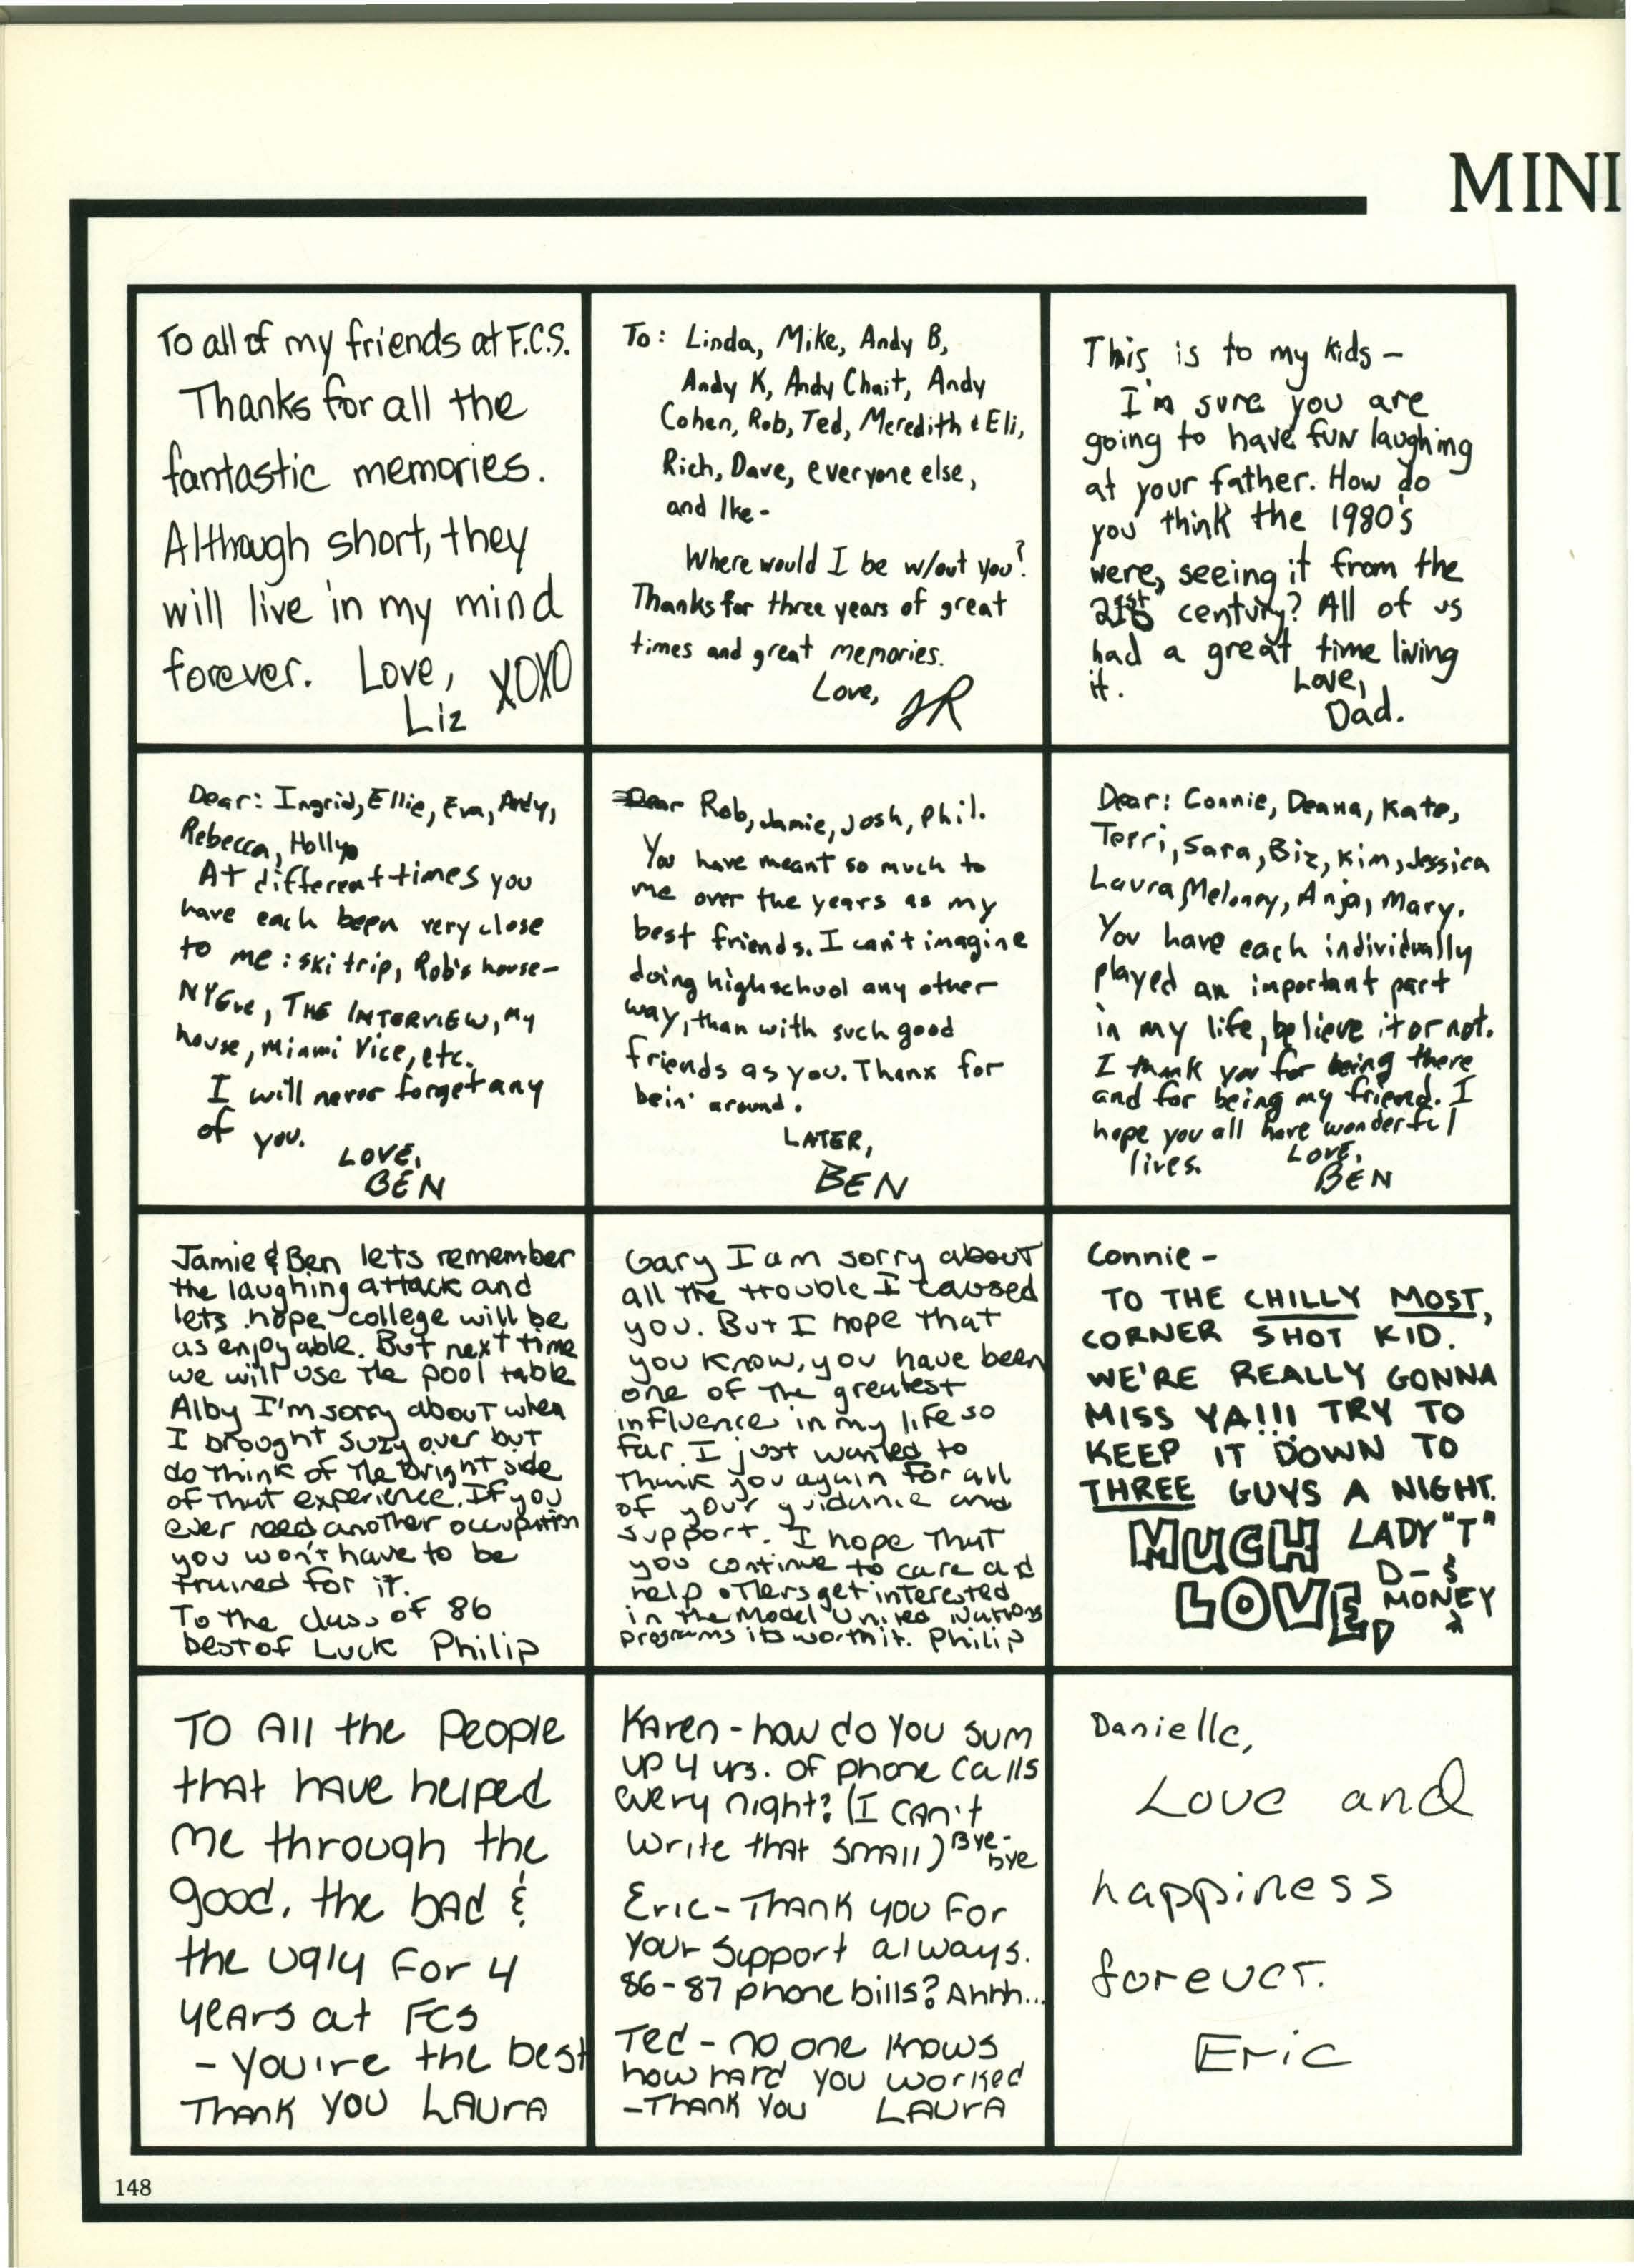 MINI
To all of my friends at F.C.S.
Thanks for all the
fantastic memories.
Although short, they
will live in my mind
forever. Love, XOXO
Liz
To: Linda, Mike, Andy B,
Andy K, Andy Chait, Andy
Cohen, Rob, Ted, Meredith & Eli,
Rich, Dave, everyone else,
and Ike-
Where would I be w/out you?
Thanks for three years of great
times and great memories.
Love, JR
This is to my kids -
I'm sure you are
going to have fun laughing
at your father. How do
you think the 1980's
were, seeing it from the
21st century? All of us
had a great time living
it. Love,
Dad.
Dear: Ingrid, Ellie, Eva, Andy,
Rebecca, Holly
At different times you
have each been very close
to me: ski trip, Rob's house-
NYEve, THE INTERVIEW, my
house, Miami Vice, etc.
I will never forget any
of you.
LOVE,
BEN
Dear Rob, Jamie, Josh, Phil.
You have meant so much to
me over the years as my
best friends. I can't imagine
doing highschool any other
way, than with such good
friends as you. Thanx for
bein' around.
LATER,
BEN
Dear: Connie, Deana, Kate,
Terri, Sara, Biz, Kim, Jessica
Laura, Meloney, Anja, Mary.
You have each individually
played an important part
in my life, believe it or not.
I thank you for being there
and for being my friend. I
hope you all have wonderful
lives. LOVE,
BEN
Jamie & Ben lets remember
the laughing attack and
lets hope college will be
as enjoyable. But next time
we will use the pool table
Alby I'm sorry about when
I brought Suzy over but
do think of the bright side
of that experience. If you
ever need another occupation
you won't have to be
trained for it.
To the class of 86
best of Luck Philip
Gary I am sorry about
all the trouble I caused
you. But I hope that
you know, you have been
one of the greatest
influences in my life so
far. I just wanted to
thank you again for all
of your guidance and
support. I hope that
you continue to care and
help others get interested
in the Model United Nations
programs its worth it. Philip
Connie -
TO THE CHILLY MOST,
CORNER SHOT KID.
WE'RE REALLY GONNA
MISS YA!!! TRY TO
KEEP IT DOWN TO
THREE GUYS A NIGHT.
MUCH LADY "T"
LOVE, D-$
MONEY
TO All the People
that have helped
me through the
good, the bad &
the ugly for 4
years at FCS
- you're the best
Thank you LAURA
Karen - how do you sum
up 4 yrs. of phone calls
every night? (I can't
write that small) Bye-
bye
Eric - Thank you for
your support always.
86-87 phone bills? Ahhh...
Ted - no one knows
how hard you worked
- Thank you LAURA
Danielle,
Love and
happiness
forever.
Eric
148